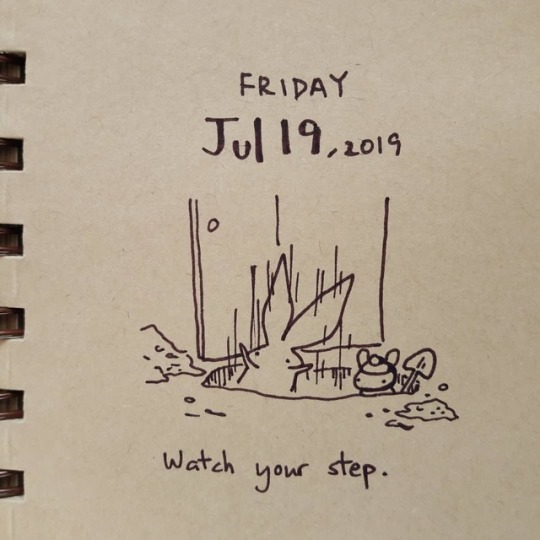 FRIDAY
Jul 19, 2019
Watch your step.